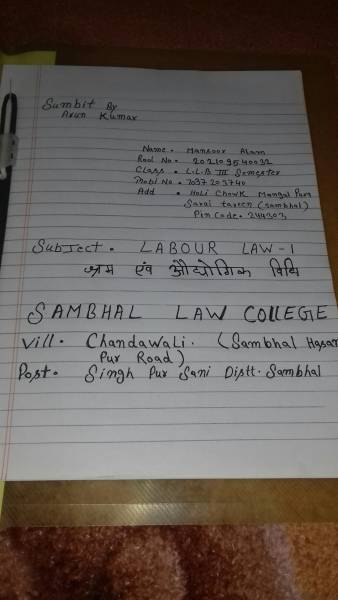 Sumbit By
Arun Kumar
Name • Mansoor Alam
Rool No • 202109540032
Class • L.L.B III Semester
Mobl No • 7037203740
Add • Holi Chowk Mangal Pura
Sarai tareen (sambhal)
Pin Code • 244303
Subject • LABOUR LAW-1
श्रम एंव औद्योगिक विधि
SAMBHAL LAW COllEGE
Vill • Chandawali. (Sambhal Hasan
Pur Road)
Post • Singh Pur Sani Distt. Sambhal